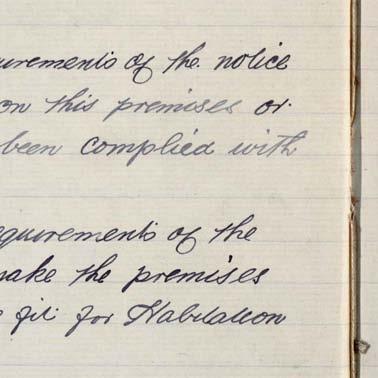 urements of the notice
on this premises or
been complied with
equirements of the
make the premises
fit for Habitation